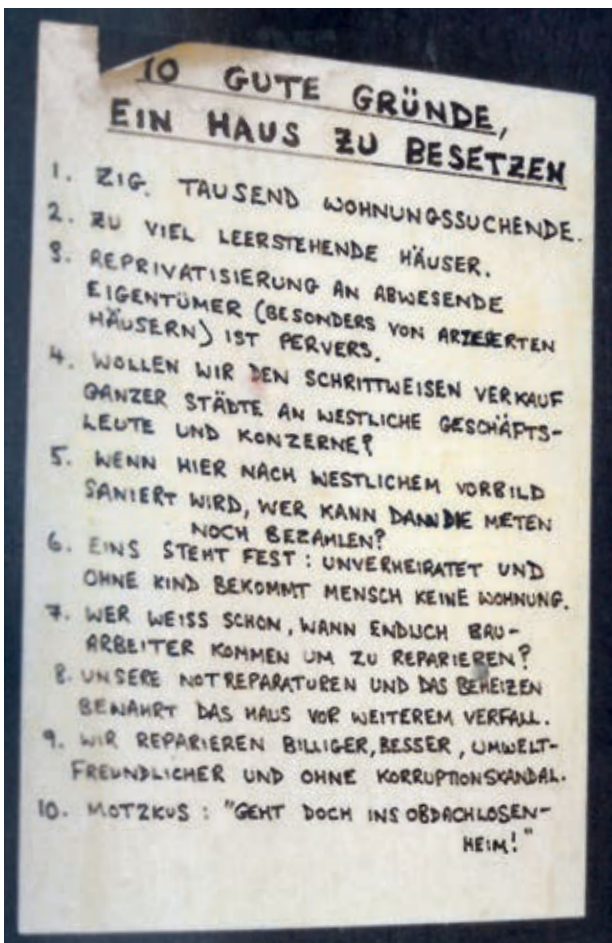 10 GUTE GRÜNDE,
EIN HAUS ZU BESETZEN
1. ZIG. TAUSEND WOHNUNGSSUCHENDE.
2. ZU VIEL LEERSTEHENDE HÄUSER.
3. REPRIVATISIERUNG AN ABWESENDE
EIGENTÜMER (BESONDERS VON
HÄUSERN) IST PERVERS.
4. WOLLEN WIR DEN SCHRITTWEISEN VERKAUF
GANZER STÄDTE AN WESTLICHE GESCHÄFTS-
LEUTE UND KONZERNE?
5. WENN HIER NACH WESTLICHEM VORBILD
SANIERT WIRD, WER KANN DANN DIE METEN
NOCH BEZAHLEN?
6. EINS STEHT FEST: UNVERHEIRATET UND
OHNE KIND BEKOMMT MENSCH KEINE WOHNUNG.
7. WER WEISS SCHON, WANN ENDLICH BAU-
ARBEITER KOMMEN UM ZU REPARIEREN?
8. UNSERE NOTREPARATUREN UND DAS BEHEIZEN
BEWAHRT DAS HAUS VOR WEITEREM VERFALL.
9. WIR REPARIEREN BILLIGER, BESSER, UMWELT-
FREUNDLICHER UND OHNE KORRUPTIONSKANDAL.
10. MOTZKUS: "GEHT DOCH INS OBDACHLOSEN-
HEIM!"